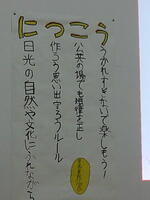 にっこう
日光の自然や文化にふれながら
作ろう思い出守ろうルール
公共の場でも を正し
うかれすぎないで楽しもう！